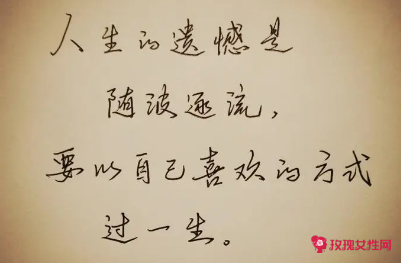 人生的遗憾是
随波逐流，
要以自己喜欢的方式
过一生。
玫瑰女性网